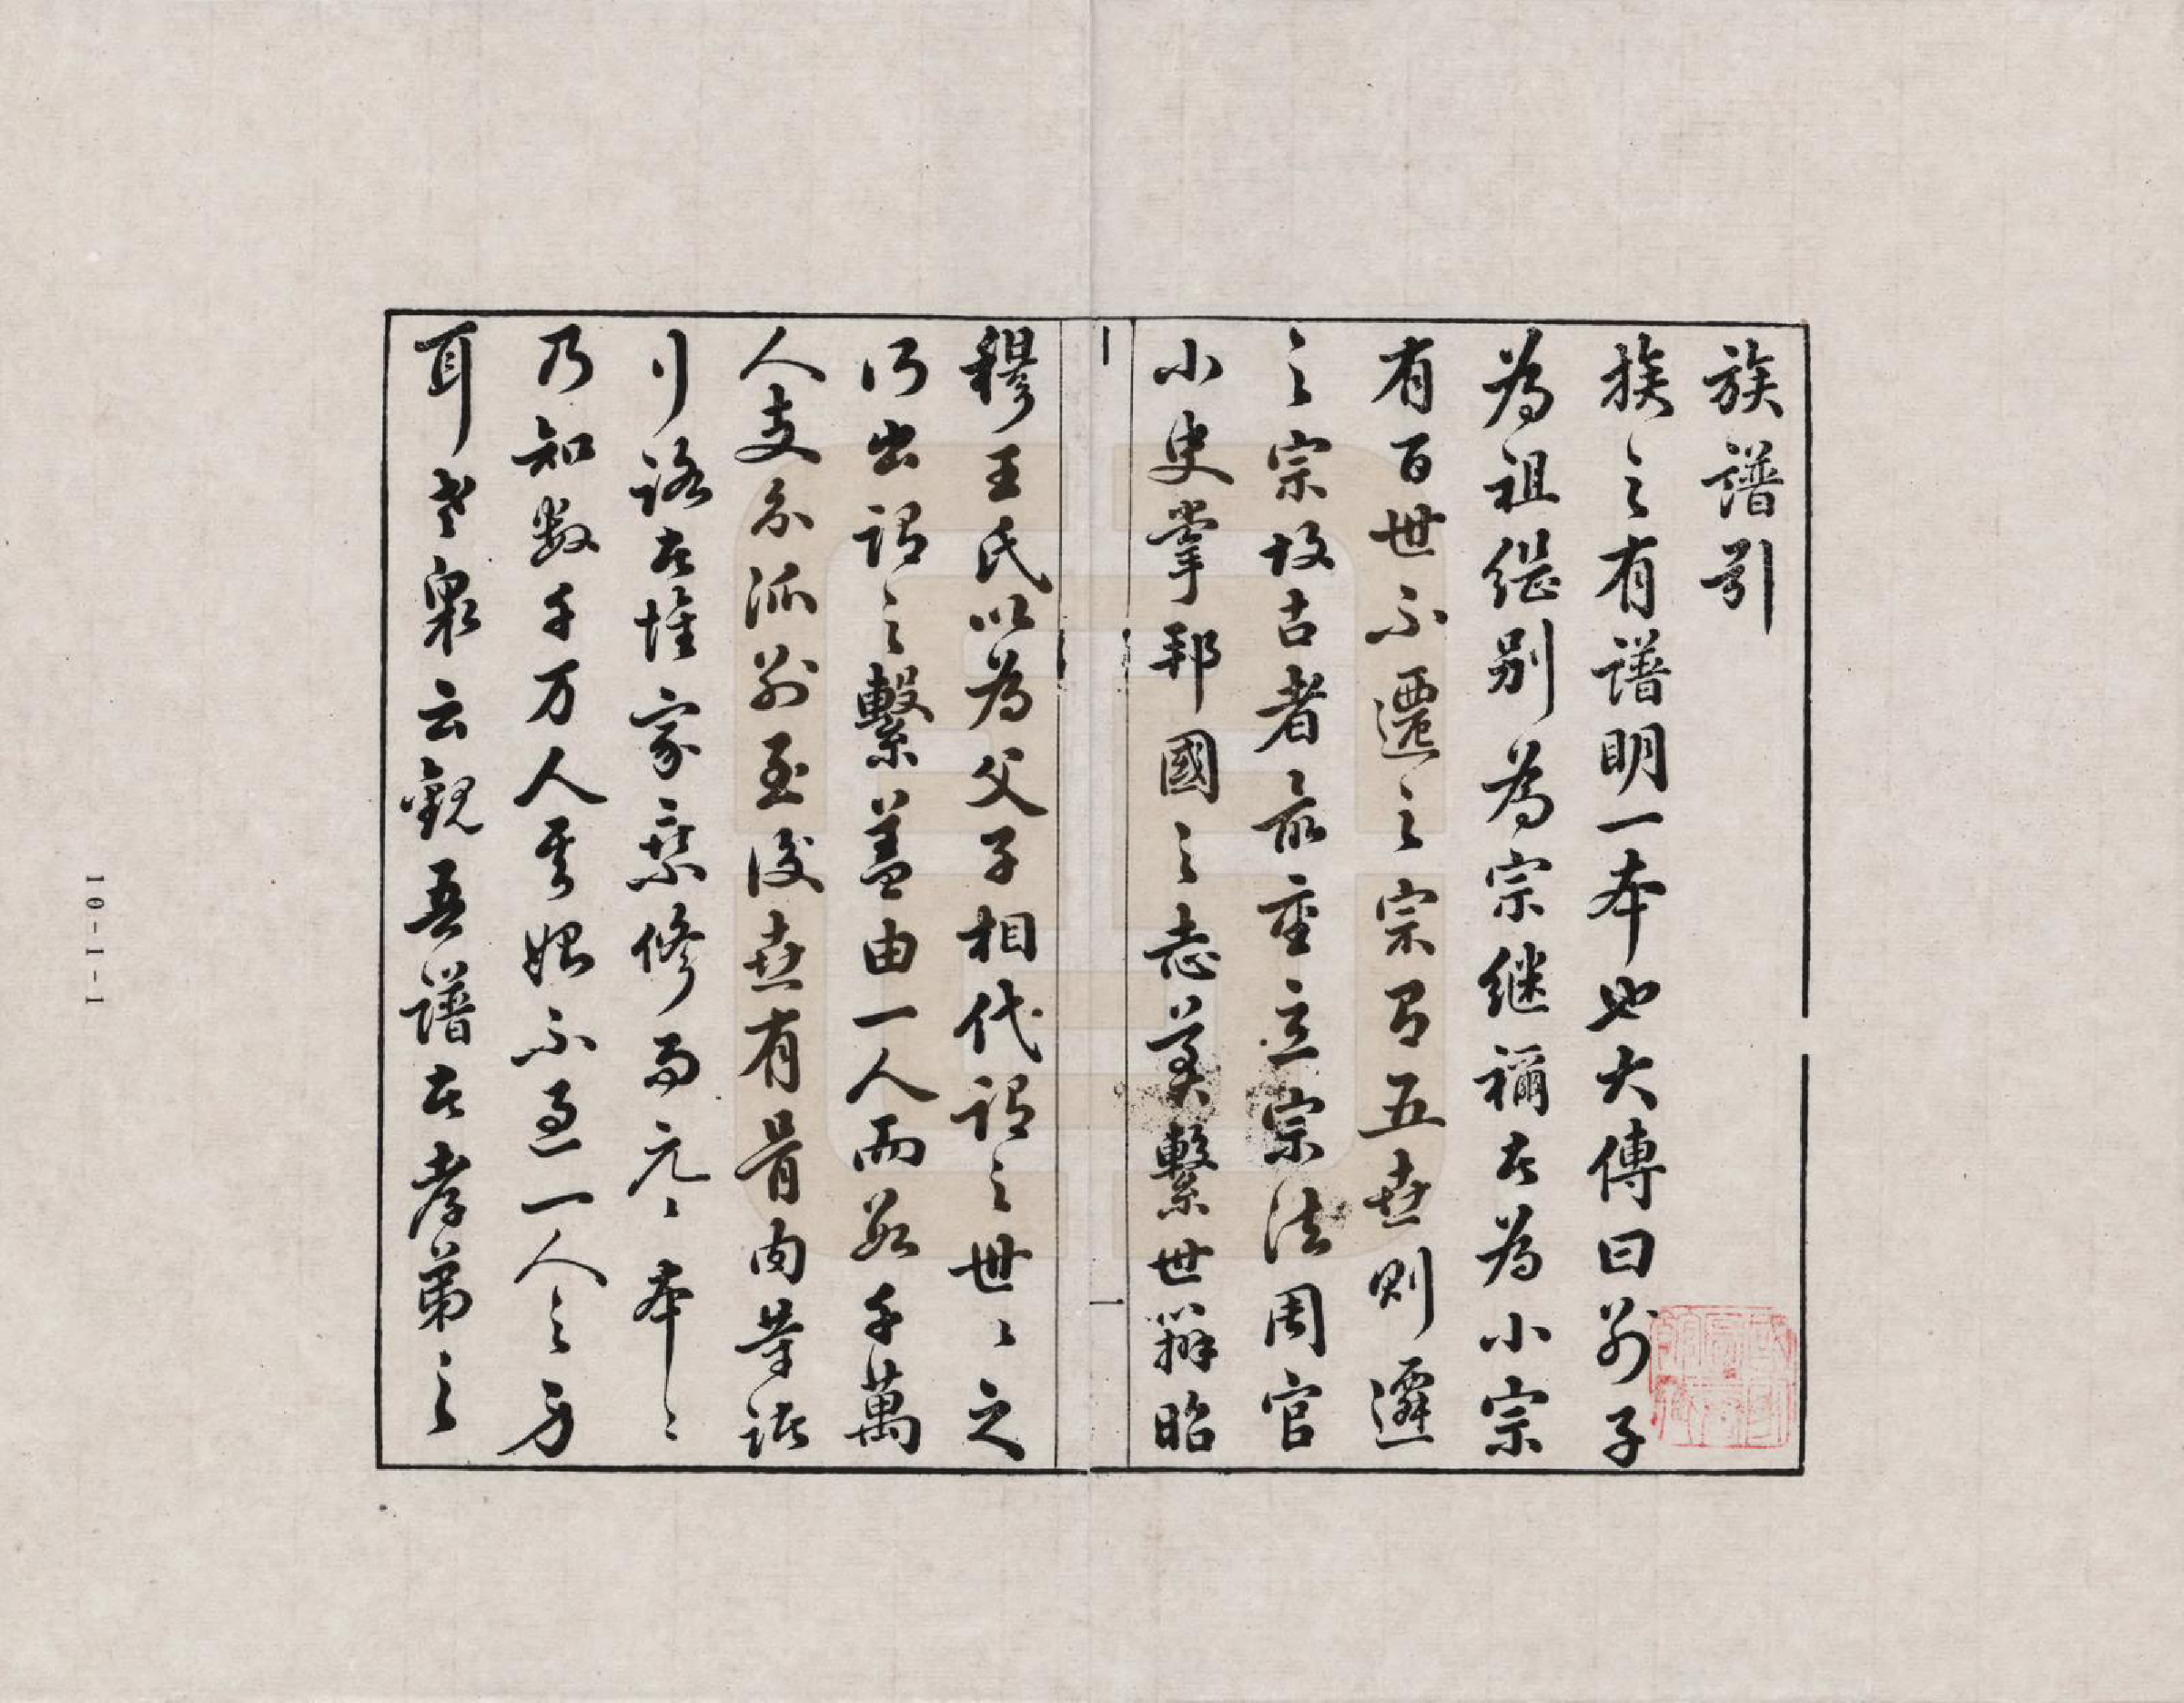 族譜引
族之有譜明一本也大傳曰別子
為祖繼別為宗继禰者為小宗
有百世不遷之宗有五世則遷
之宗故古者最重立宗法周官
小史掌邦國之志奠繫世辯昭
穆王氏以為父子相代謂之世〻之
所出謂之繫蓋由一人而數千萬
人支分派別至後世有骨肉等諸
行路者惟家乘修而元〻本〻
乃知数千万人其始不過一人之身
耳老泉云觀吾譜者孝弟之
10-1-1